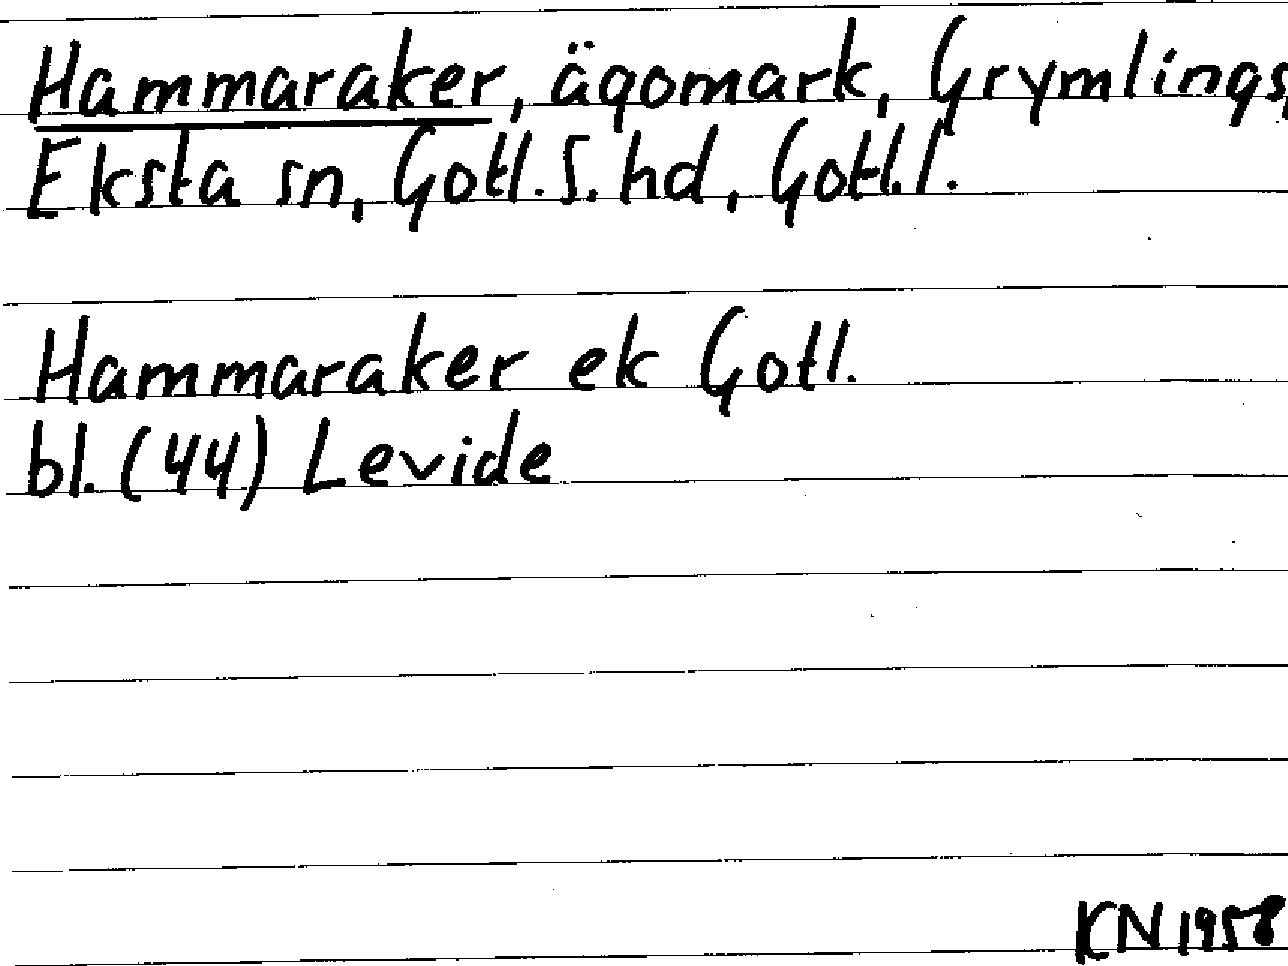 Hammaraker, ägomark, Grymlings,
Eksta sn, Gotl. S. hd, Gotl. l.
Hammaraker ek Gotl.
bl. (44) Levide
KN 1958